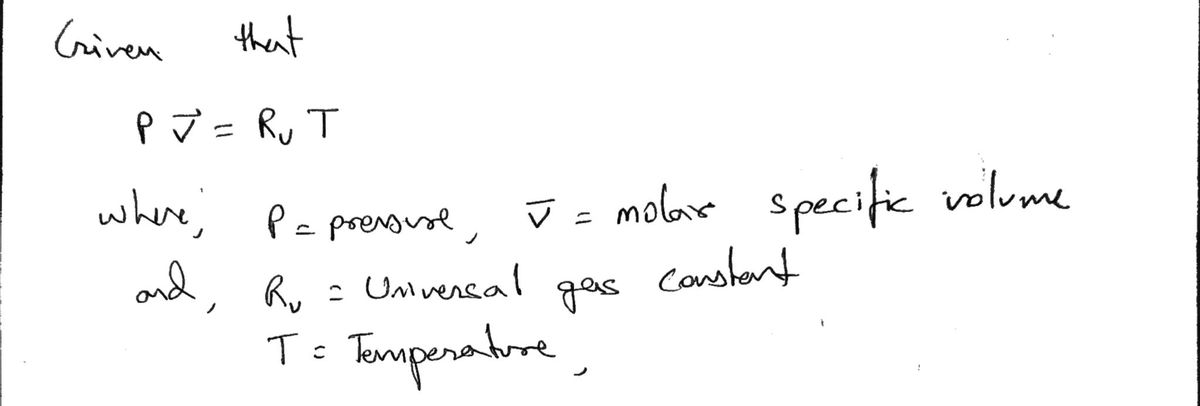 Given that
P v̄ = Rᵤ T
where, P = pressure, v̄ = molar specific volume
and, Rᵤ = Universal gas constant
T = Temperature,